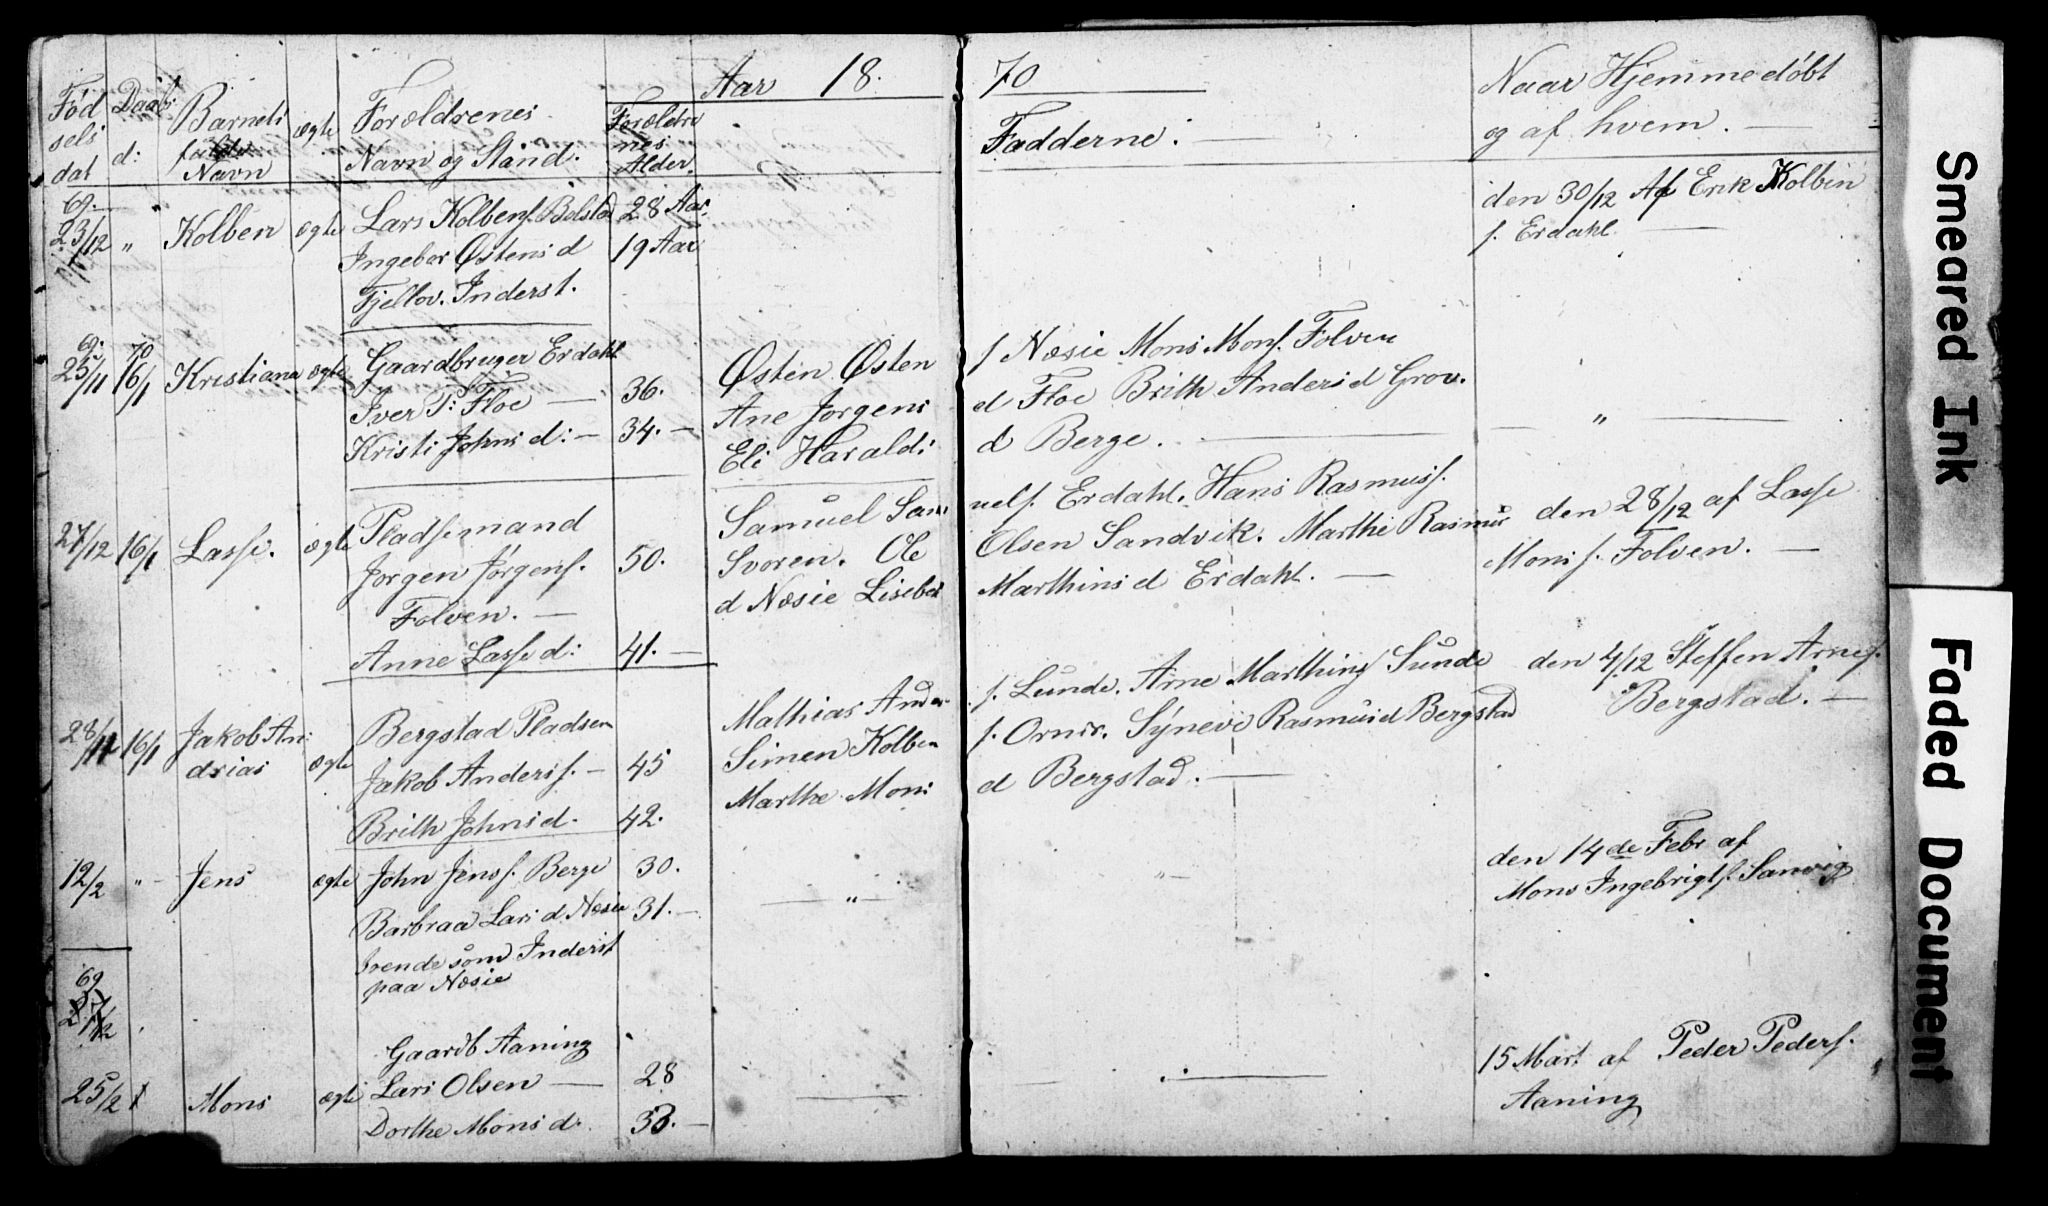 Aar 18. 70
Fød
sels
dat
Daabs
d:
Barnets
fulde
Navn
ægte
Forældrenes
Navn og Stand.
Forældre
nes
Alder.
Fadderne:
Naar Hjemmedöbt
og af hvem.
69.
23/12 " Kolben ægte Lars Kolbens. Bolstad 28 Aar.
Ingebor Østens d 19 Aar
Fjellov. Inderst.
den 30/12 Af Erik Kolbin
s. Erdahl
69. 70
25/11 16/1 Kristiana ægte Gaardbruger Erdahl
Iver P: Floe — 36.
Kristi Johns d: — 34. —
Østen Østen s Næsie Mons Mons. Folven
Ane Jorgens d Floe Brith Anders d Grov.
Eli Haralds d Berge. — "
27/12 16/1 Lasse. ægte Pladsemand
Jorgen Jörgens. 50.
Folven. —
Anne Lasse d: 41. —
Samuel Sam uels. Erdahl. Hans Rasmuss.
Svoren. Ole Olsen Sandvik. Marthe Rasmus
d Næsie Lisebet Marthins d Erdahl. —
den 28/12 af Lasse
Mons s. Folven. —
28/11 16/1 Jakob An:
drias ægte
Bergstad Pladsen
Jakob Anders s. — 45
Brith Johns d. 42.
Mathias Ander s. Lunde. Arne Marthins Sunde
Simen Kolben s. Ornes. Syneve Rasmus d Bergstad
Marthe Mons d Bergstad. —
den 4/12 Steffen Arnes.
Bergstad. —
12/2 " Jens ægte John Jens s. Berge 30.
Barbraa Lars d. Næsie 31. —
boende som Inderst
paa Næsie
— " —
den 14de Febr af
Mons Ingebrigts. Sanvig
69
Gaardb Aaning
25/2 Mons ægte Lars Olsen — 28
Dorthe Mons d. 33. —
15 Mart af Peder Peders.
Aaning
Smeared Ink
Faded Document